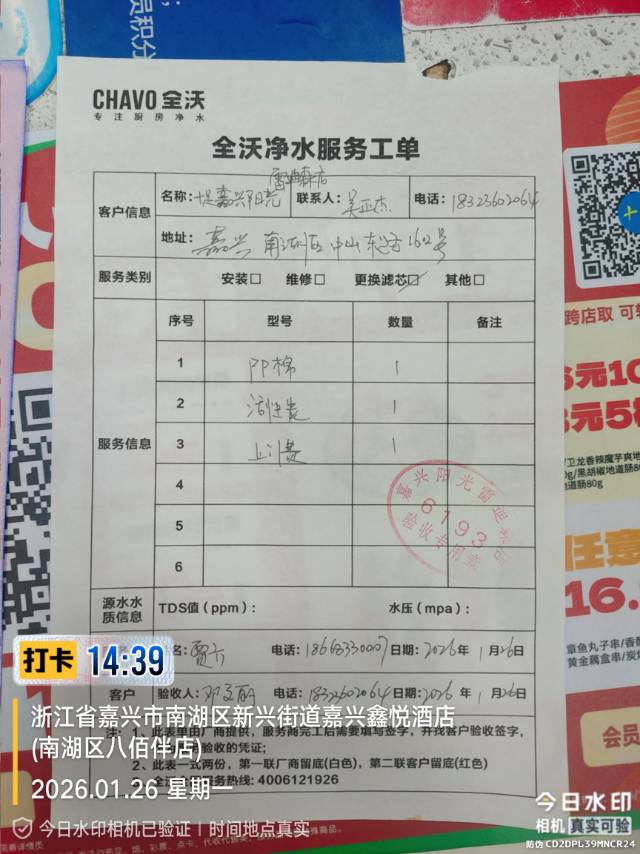 员积分
CHAVO 全沃
专注厨房净水
全沃净水服务工单
客户信息
名称:
嘉兴阳光
联系人: 吴正杰
电话: 18323602064
地址: 嘉兴 南湖区 中山东路162号
服务类别
安装□ 维修□ 更换滤芯☑ 其他□
服务信息
序号 型号 数量 备注
1 PP棉 1
2 1
3 1
4
5
6
嘉兴阳光雷迪森店
6193
验收专用章
源水水质信息
TDS值(ppm): 水压(mpa):
名: 贾六 电话: 日期: 2026年1月26日
客户
验收人: 电话: 18323602064 日期: 2026年1月26日
注: 1、此表单由厂商提供,服务商完工后需要填写签字,并找客户验收签字,
验收的凭证;
2、此表一式两份,第一联厂商留底(白色),第二联客户留底(红色)
3、全沃净水服务热线: 4006121926
打卡 14:39
浙江省嘉兴市南湖区新兴街道嘉兴鑫悦酒店
(南湖区八佰伴店)
2026.01.26 星期一
今日水印相机已验证 | 时间地点真实
今日水印
相机 真实可验
防伪 CD2DPL39MNCR24
跨店取
元10
元58
卫龙香辣魔芋爽
g/黑胡椒地道肠80
道肠80g
任意
16.
章鱼丸子串/香
黄金藕盒串/
会员